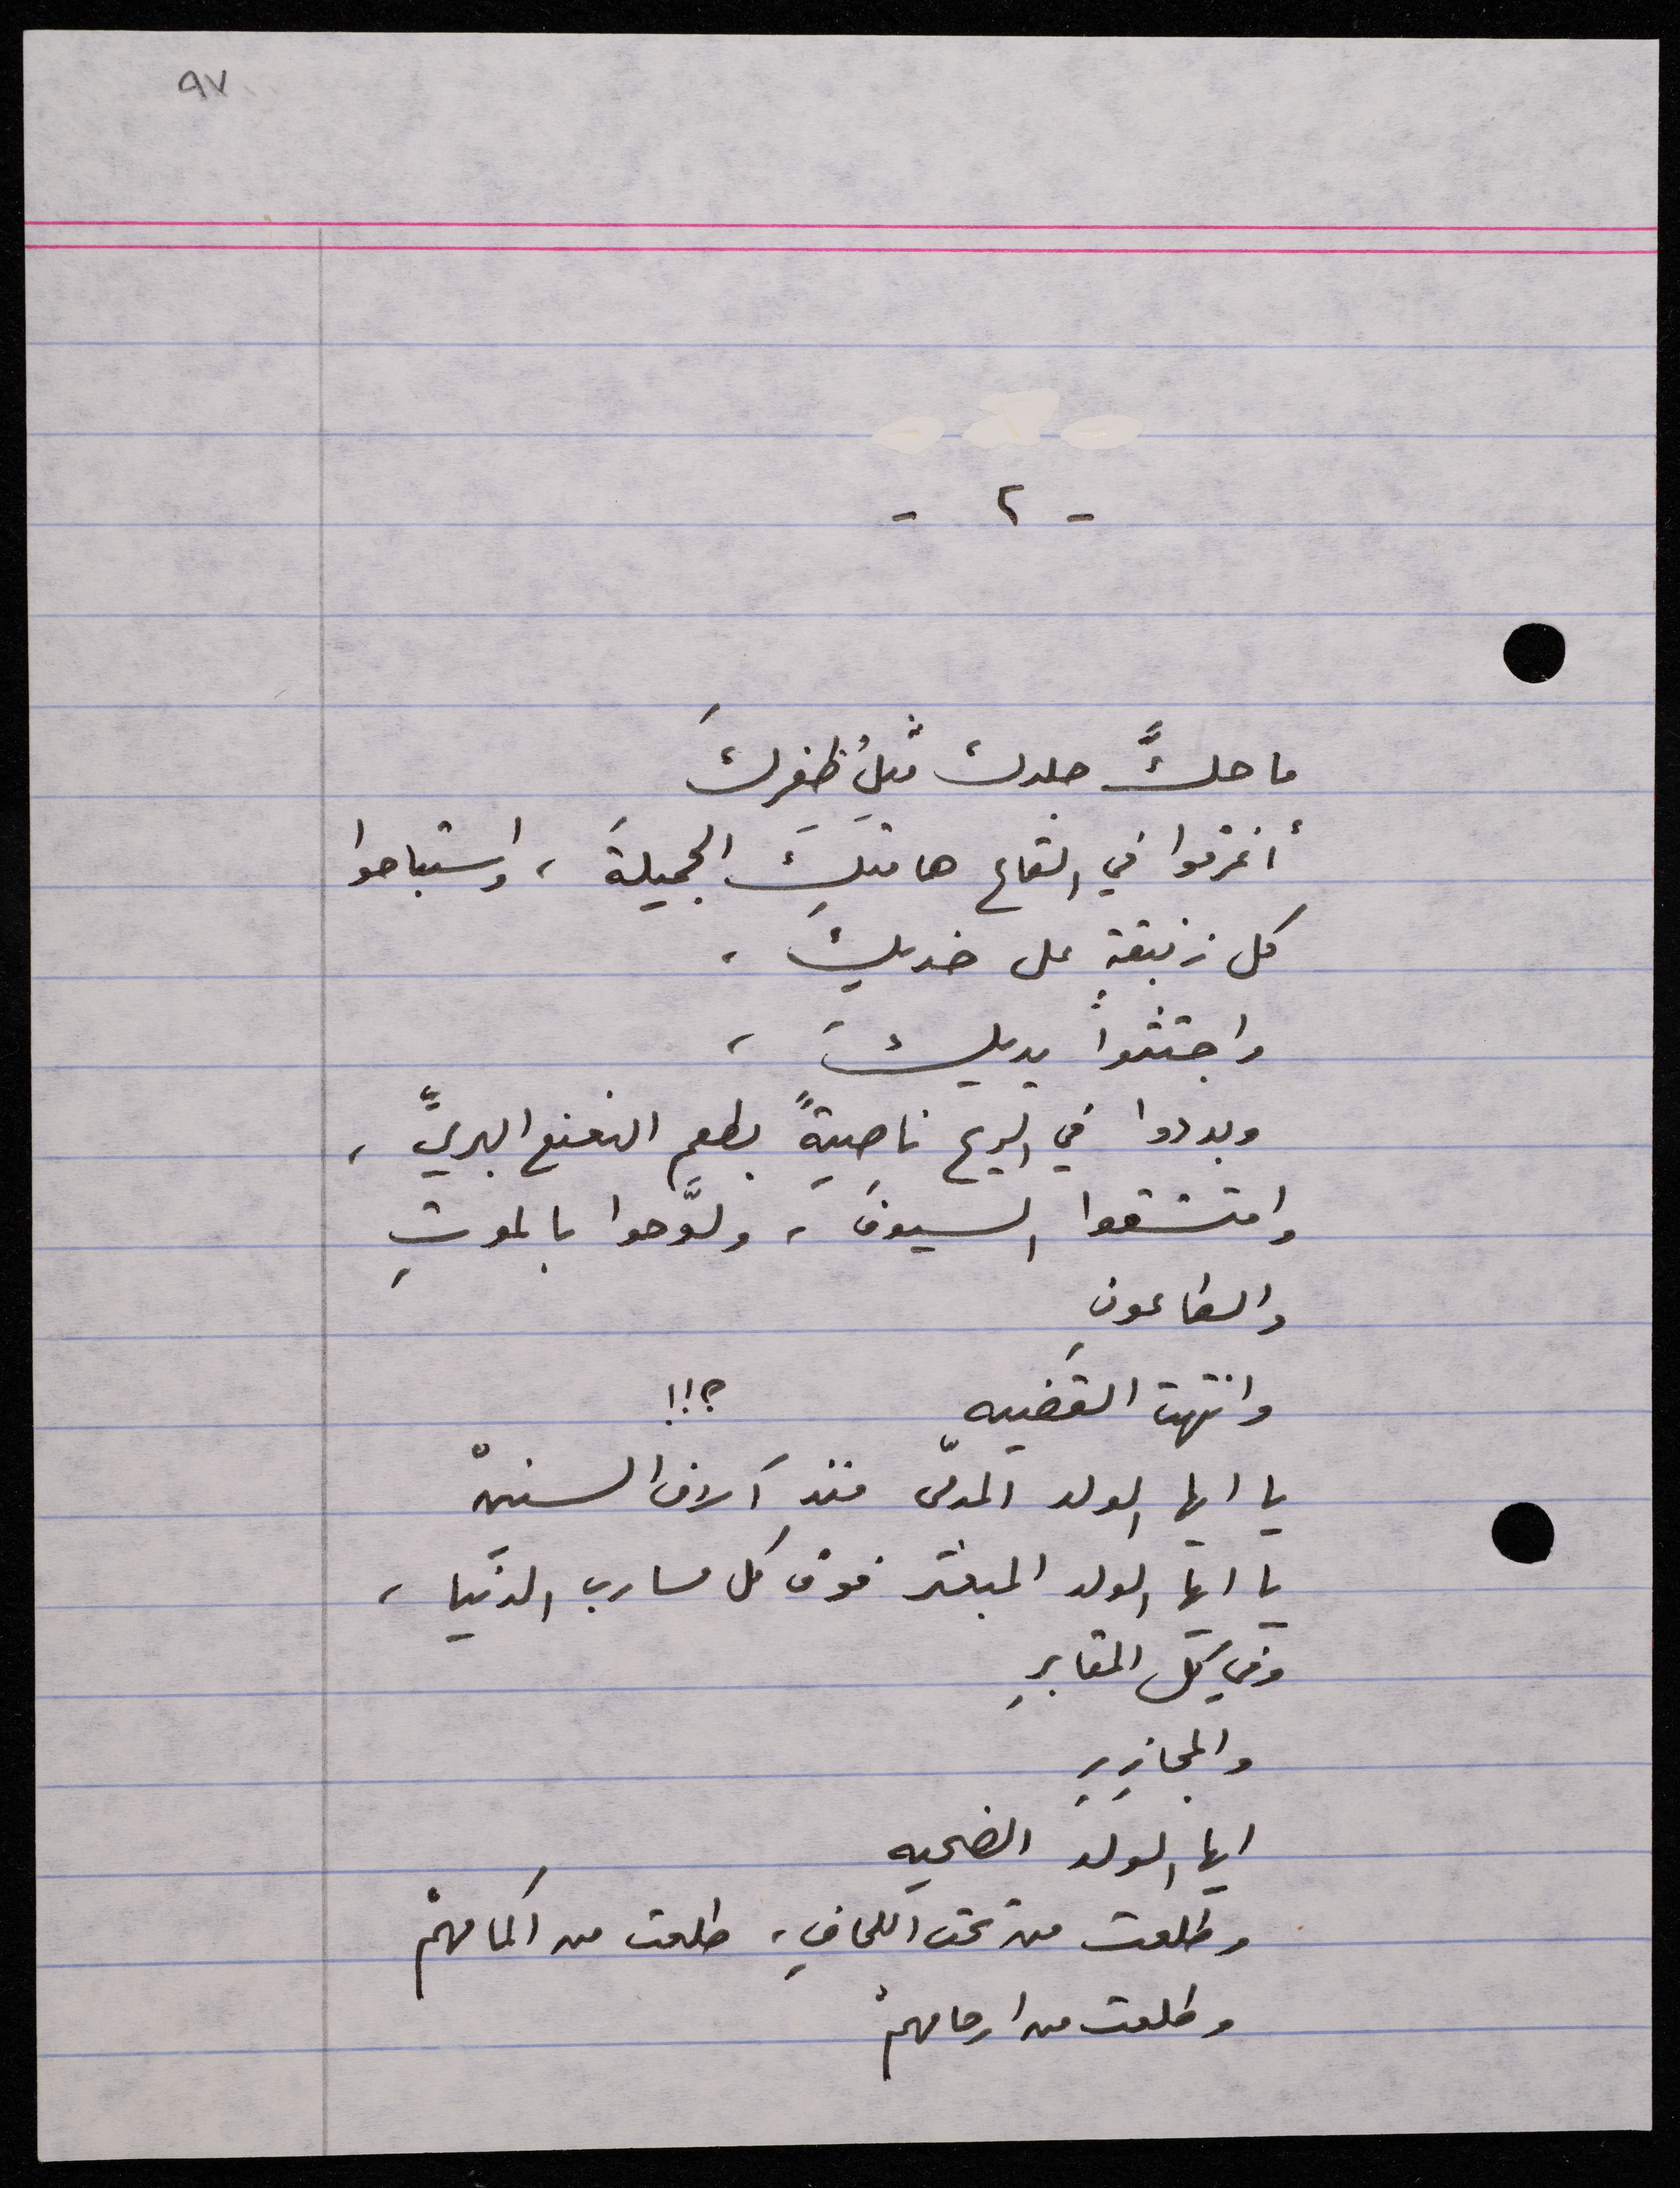 ٩٧
- ٢ -
ما حكَّ جلدك مثلُ ظفرِكَ
أغرقوا في القاع هامتَكَ الجميلةَ ، واستباحوا
كل زنبقةٍ على خديكَ ،
واجتثوا يديكَ ،
وبددوا في الريح ناصيةً بطعمِ النعنع البريِّ ،
وامتشقوا السيوفَ ، ولوَّحوا بالموتِ
والطاعونِ
وانتهت القضيه ؟!!
يا ايها الولد المدمّى منذ آلاف السنينْ
يا ايها الولد المبعثر فوق كل مسارب الدنيا ،
وفي كل المقابرِ
والمجازِرِ
ايها الولد الضحيه
وطلعت من تحت اللحافِ ، طلعت من اكمامهمْ
وطلعت من ارحامهمْ